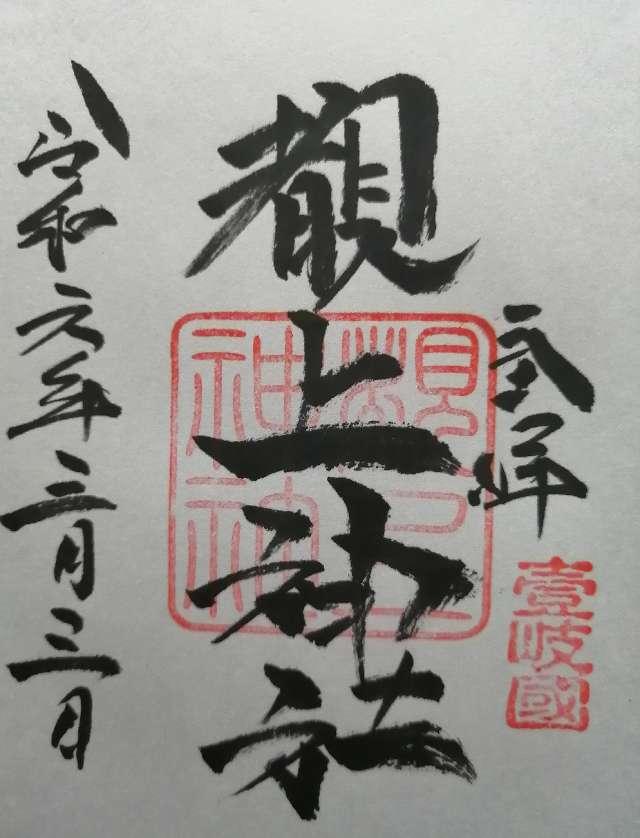 奉拝
壹岐國
覩上神社
覩上
神社
令和六年三月三日